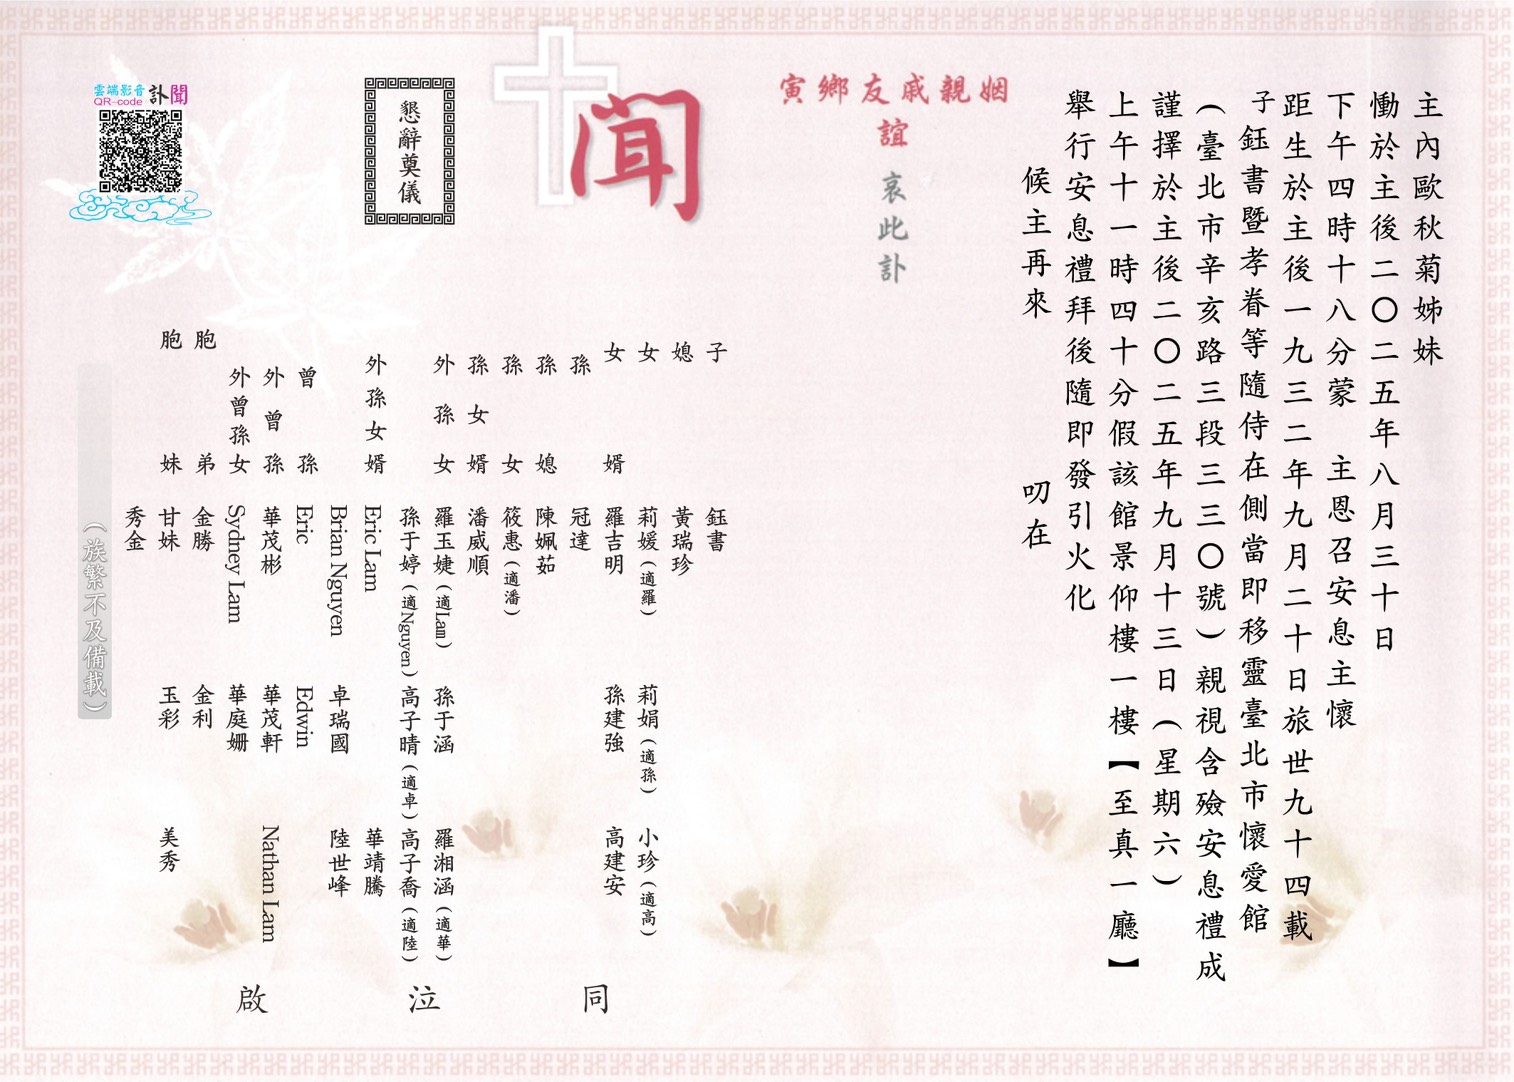 主內歐秋菊姊妹
慟於主後二〇二五年八月三十日
下午四時十八分蒙　主恩召安息主懷
距生於主後一九三二年九月二十日旅世九十四載
子鈺書暨孝眷等隨侍在側當即移靈臺北市懷愛館
（臺北市辛亥路三段三三〇號）親視含殮安息禮成
謹擇於主後二〇二五年九月十三日（星期六）
上午十一時四十分假該館景仰樓一樓【至真一廳】
舉行安息禮拜後隨即發引火化
候主再來　叨在
姻親戚友鄉寅
誼
哀此訃
聞
懇辭奠儀
雲端影音
QR-code
訃聞
子　鈺書
媳　黃瑞珍
女　莉媛（適羅）　莉娟（適孫）　小珍（適高）
女婿　羅吉明　孫建強　高建安
孫　冠達
孫媳　陳姵茹
孫女　筱惠（適潘）
孫女婿　潘威順
外孫女　羅玉婕（適Lam）　孫于涵　羅湘涵（適華）
孫于婷（適Nguyen）　高子晴（適卓）　高子喬（適陸）
外孫女婿　Eric Lam　華靖騰
Brian Nguyen　卓瑞國　陸世峰
曾孫　Eric　Edwin
外曾孫　華茂彬　華茂軒　Nathan Lam
外曾孫女　Sydney Lam　華庭姍
胞弟　金勝　金利
胞妹　甘妹　玉彩　美秀
秀金
（族繁不及備載）
同泣啟